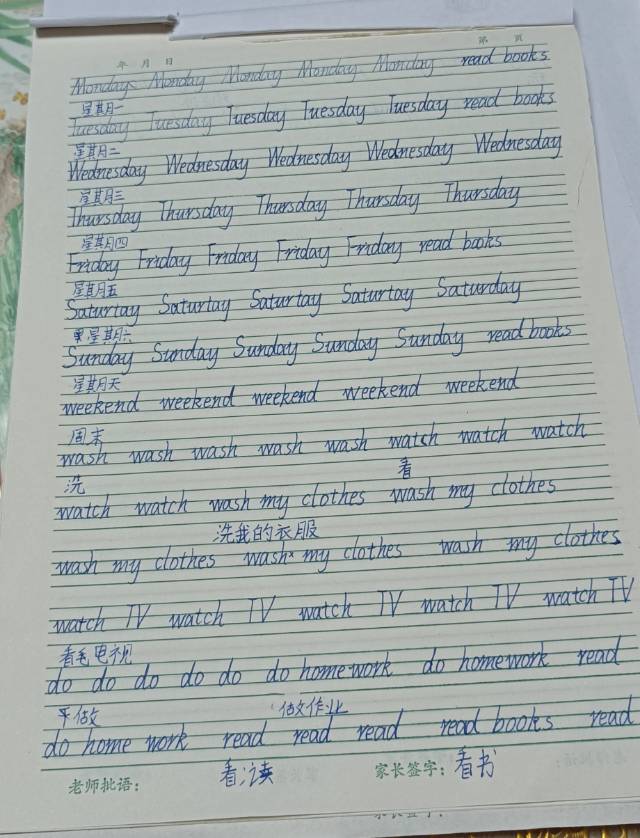 年 月 日 第 页
Monday Monday Monday Monday Monday read books
星期一
Tuesday Tuesday Tuesday Tuesday Tuesday read books
星期二
Wednesday Wednesday Wednesday Wednesday Wednesday
星期三
Thursday Thursday Thursday Thursday Thursday
星期四
Friday Friday Friday Friday Friday read books
星期五
Saturtay Saturtay Saturtay Saturtay Saturday
星期六
Sunday Sunday Sunday Sunday Sunday read books
星期天
weekend weekend weekend weekend weekend
周末
wash wash wash wash wash watch watch watch
洗 看
watch watch wash my clothes wash my clothes
洗我的衣服
wash my clothes wash my clothes wash my clothes
watch TV watch TV watch TV watch TV watch TV
看电视
do do do do do do homework do homework read
做 做作业
do home work read read read read books read
老师批语： 看;读 家长签字： 看书